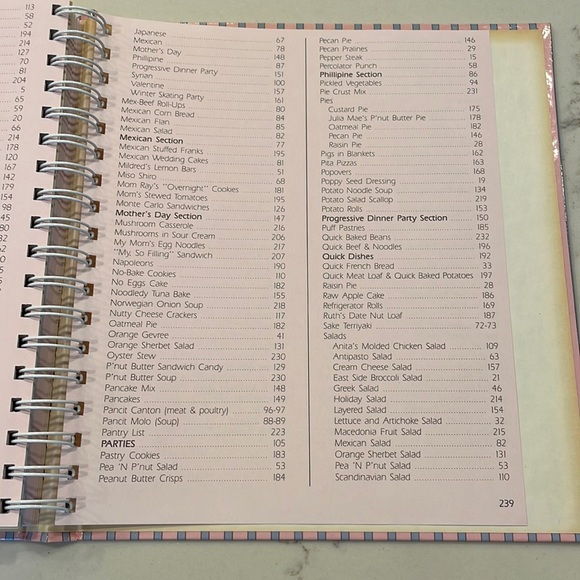 113
58
52
194
214
127
70
81
204
5
65
59
20
66
214
178
120
167
142
179
154
Japanese 67
Mexican 78
Mother's Day 148
Phillipine 87
Progressive Dinner Party 151
Syrian 100
Valentine 157
Winter Skating Party 161
Mex-Beef Roll-Ups 80
Mexican Corn Bread 84
Mexican Flan 85
Mexican Salad 82
Mexican Section 77
Mexican Stuffed Franks 195
Mexican Wedding Cakes 81
Mildred's Lemon Bars 51
Miso Shiro 68
Mom Ray's "Overnight" Cookies 181
Mom's Stewed Tomatoes 195
Monte Carlo Sandwiches 126
Mother's Day Section 147
Mushroom Casserole 216
Mushrooms in Sour Cream 206
My Mom's Egg Noodles 217
"My, So Filling" Sandwich 207
Napoleons 190
No-Bake Cookies 110
No Eggs Cake 182
Noodledy Tuna Bake 155
Norwegian Onion Soup 218
Nutty Cheese Crackers 117
Oatmeal Pie 182
Orange Gevree 41
Orange Sherbet Salad 131
Oyster Stew 230
P'nut Butter Sandwich Candy 129
P'nut Butter Soup 230
Pancake Mix 148
Pancakes 149
Pancit Canton (meat & poultry) 96-97
Pancit Molo (Soup) 88-89
Pantry List 223
PARTIES 105
Pastry Cookies 183
Pea 'N P'nut Salad 53
Peanut Butter Crisps 184
Pecan Pie 146
Pecan Pralines 29
Pepper Steak 15
Percolator Punch 58
Phillipine Section 86
Pickled Vegetables 94
Pie Crust Mix 231
Pies
Custard Pie 175
Julia Mae's P'nut Butter Pie 178
Oatmeal Pie 182
Pecan Pie 146
Raisin Pie 28
Pigs in Blankets 162
Pita Pizzas 163
Popovers 168
Poppy Seed Dressing 19
Potato Noodle Soup 134
Potato Salad Scallop 219
Potato Rolls 153
Progressive Dinner Party Section 150
Puff Pastries 185
Quick Baked Beans 232
Quick Beef & Noodles 196
Quick Dishes 192
Quick French Bread 33
Quick Meat Loaf & Quick Baked Potatoes 197
Raisin Pie 28
Raw Apple Cake 186
Refrigerator Rolls 169
Ruth's Date Nut Loaf 187
Sake Terriyaki 72-73
Salads
Anita's Molded Chicken Salad 109
Antipasto Salad 63
Cream Cheese Salad 157
East Side Broccoli Salad 21
Greek Salad 46
Holiday Salad 214
Layered Salad 154
Lettuce and Artichoke Salad 32
Macedonia Fruit Salad 215
Mexican Salad 82
Orange Sherbet Salad 131
Pea 'N P'nut Salad 53
Scandinavian Salad 110
239